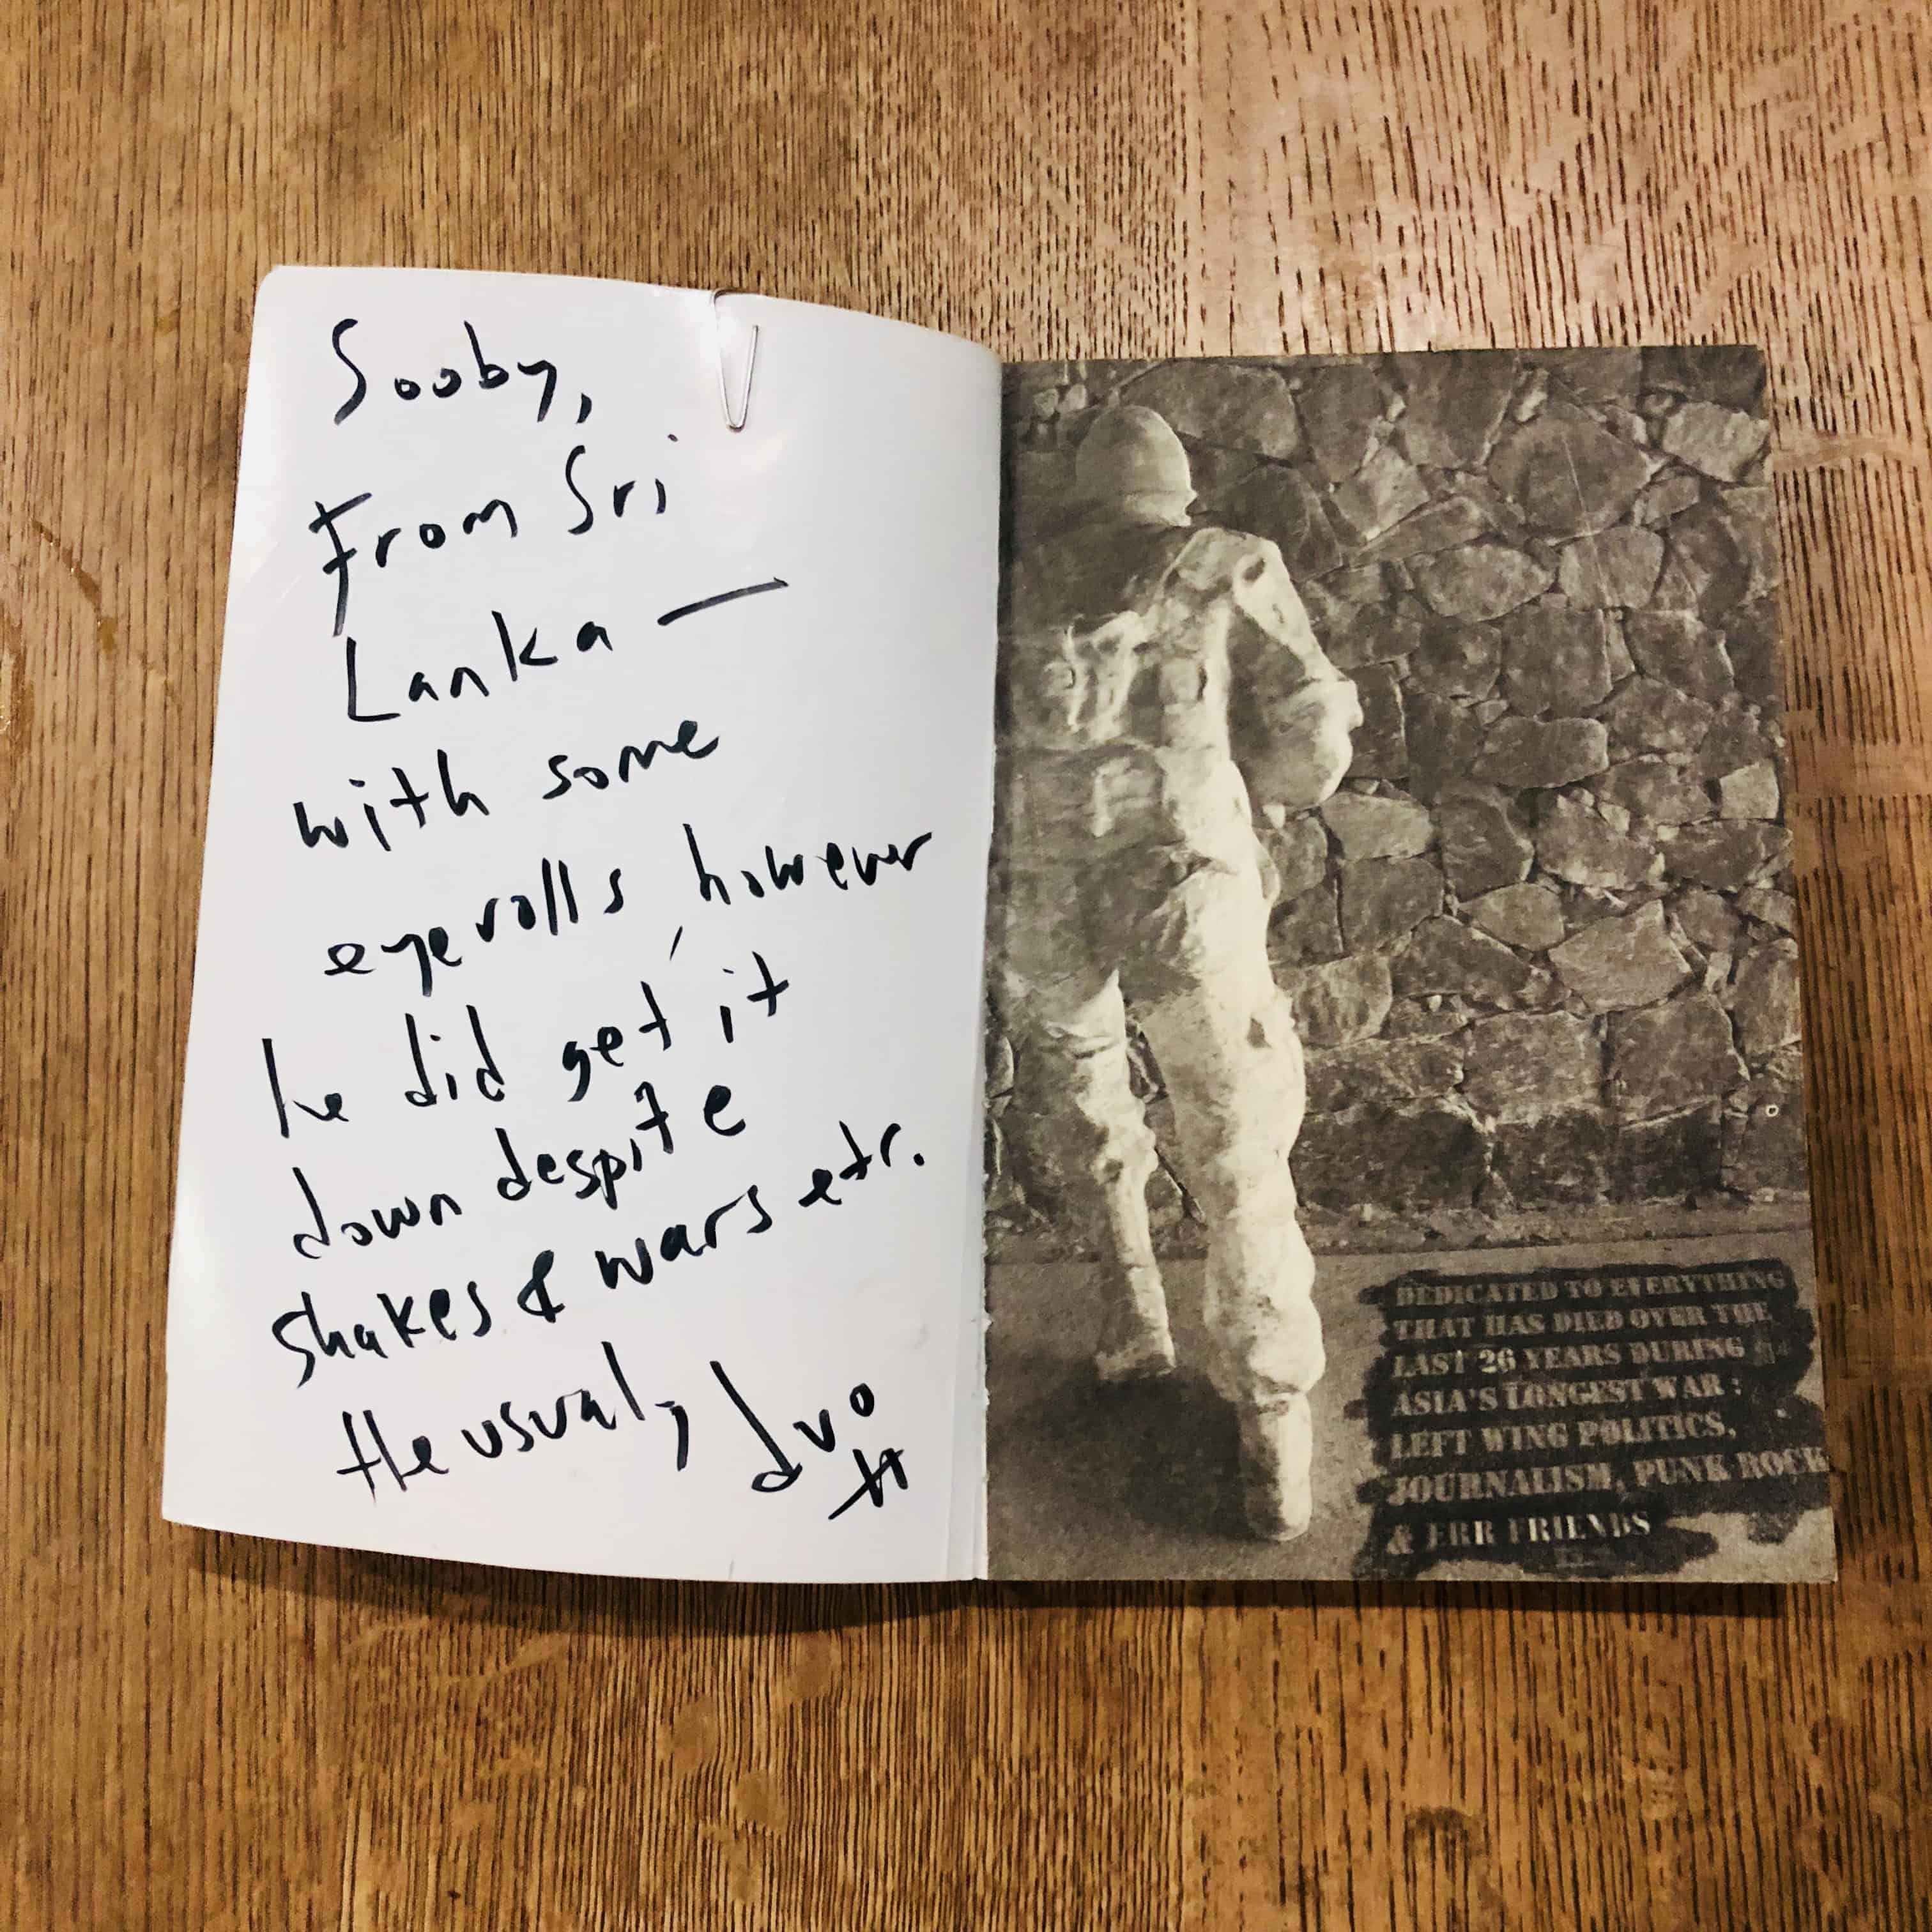 Sooby,
From Sri
Lanka —
with some
eyerolls, however
he did get it
down despite
shakes & wars etc.
the usual,
DEDICATED TO EVERYTHING
THAT HAS DIED OVER THE
LAST 26 YEARS DURING
ASIA'S LONGEST WAR :
LEFT WING POLITICS,
JOURNALISM, PUNK ROCK
& ERR FRIENDS